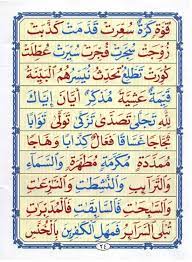 قُوَّةٍ كَرَّةٌ سُعِّرَتْ قَدَّمَتْ كَذَّبَتْ
زُوِّجَتْ سُجِّرَتْ فُجِّرَتْ سُيِّرَتْ عُطِّلَتْ
كُوِّرَتْ تَطَّلِعُ تُحَدِّثُ نُيَسِّرُهُمْ الْبَيِّنَةُ
قَيِّمَةٌ عَشِيَّةً مُذَكِّرٌ أَيَّانَ إِيَّاكَ
لِلّٰهِ تَجَلّٰى تَصَدّٰى تَزَكّٰى تَوَلّٰى تَوَّابًا
ثَجَّاجًا غَسَّاقًا فَعَّالٌ كِذَّابًا وَهَّاجًا
مُمَدَّدَةٍ مُكَرَّمَةٍ مُطَهَّرَةٍ وَالسَّمَآءِ
وَالتَّرَآئِبِ وَالنّٰشِطٰتِ وَالنّٰزِعٰتِ
وَالسّٰبِحٰتِ فَالسّٰبِقٰتِ فَالْمُدَبِّرٰتِ
تُبْلَى السَّرَآئِرُ فَمَهِّلِ الْكٰفِرِينَ بِالْخُنَّسِ
٢٤